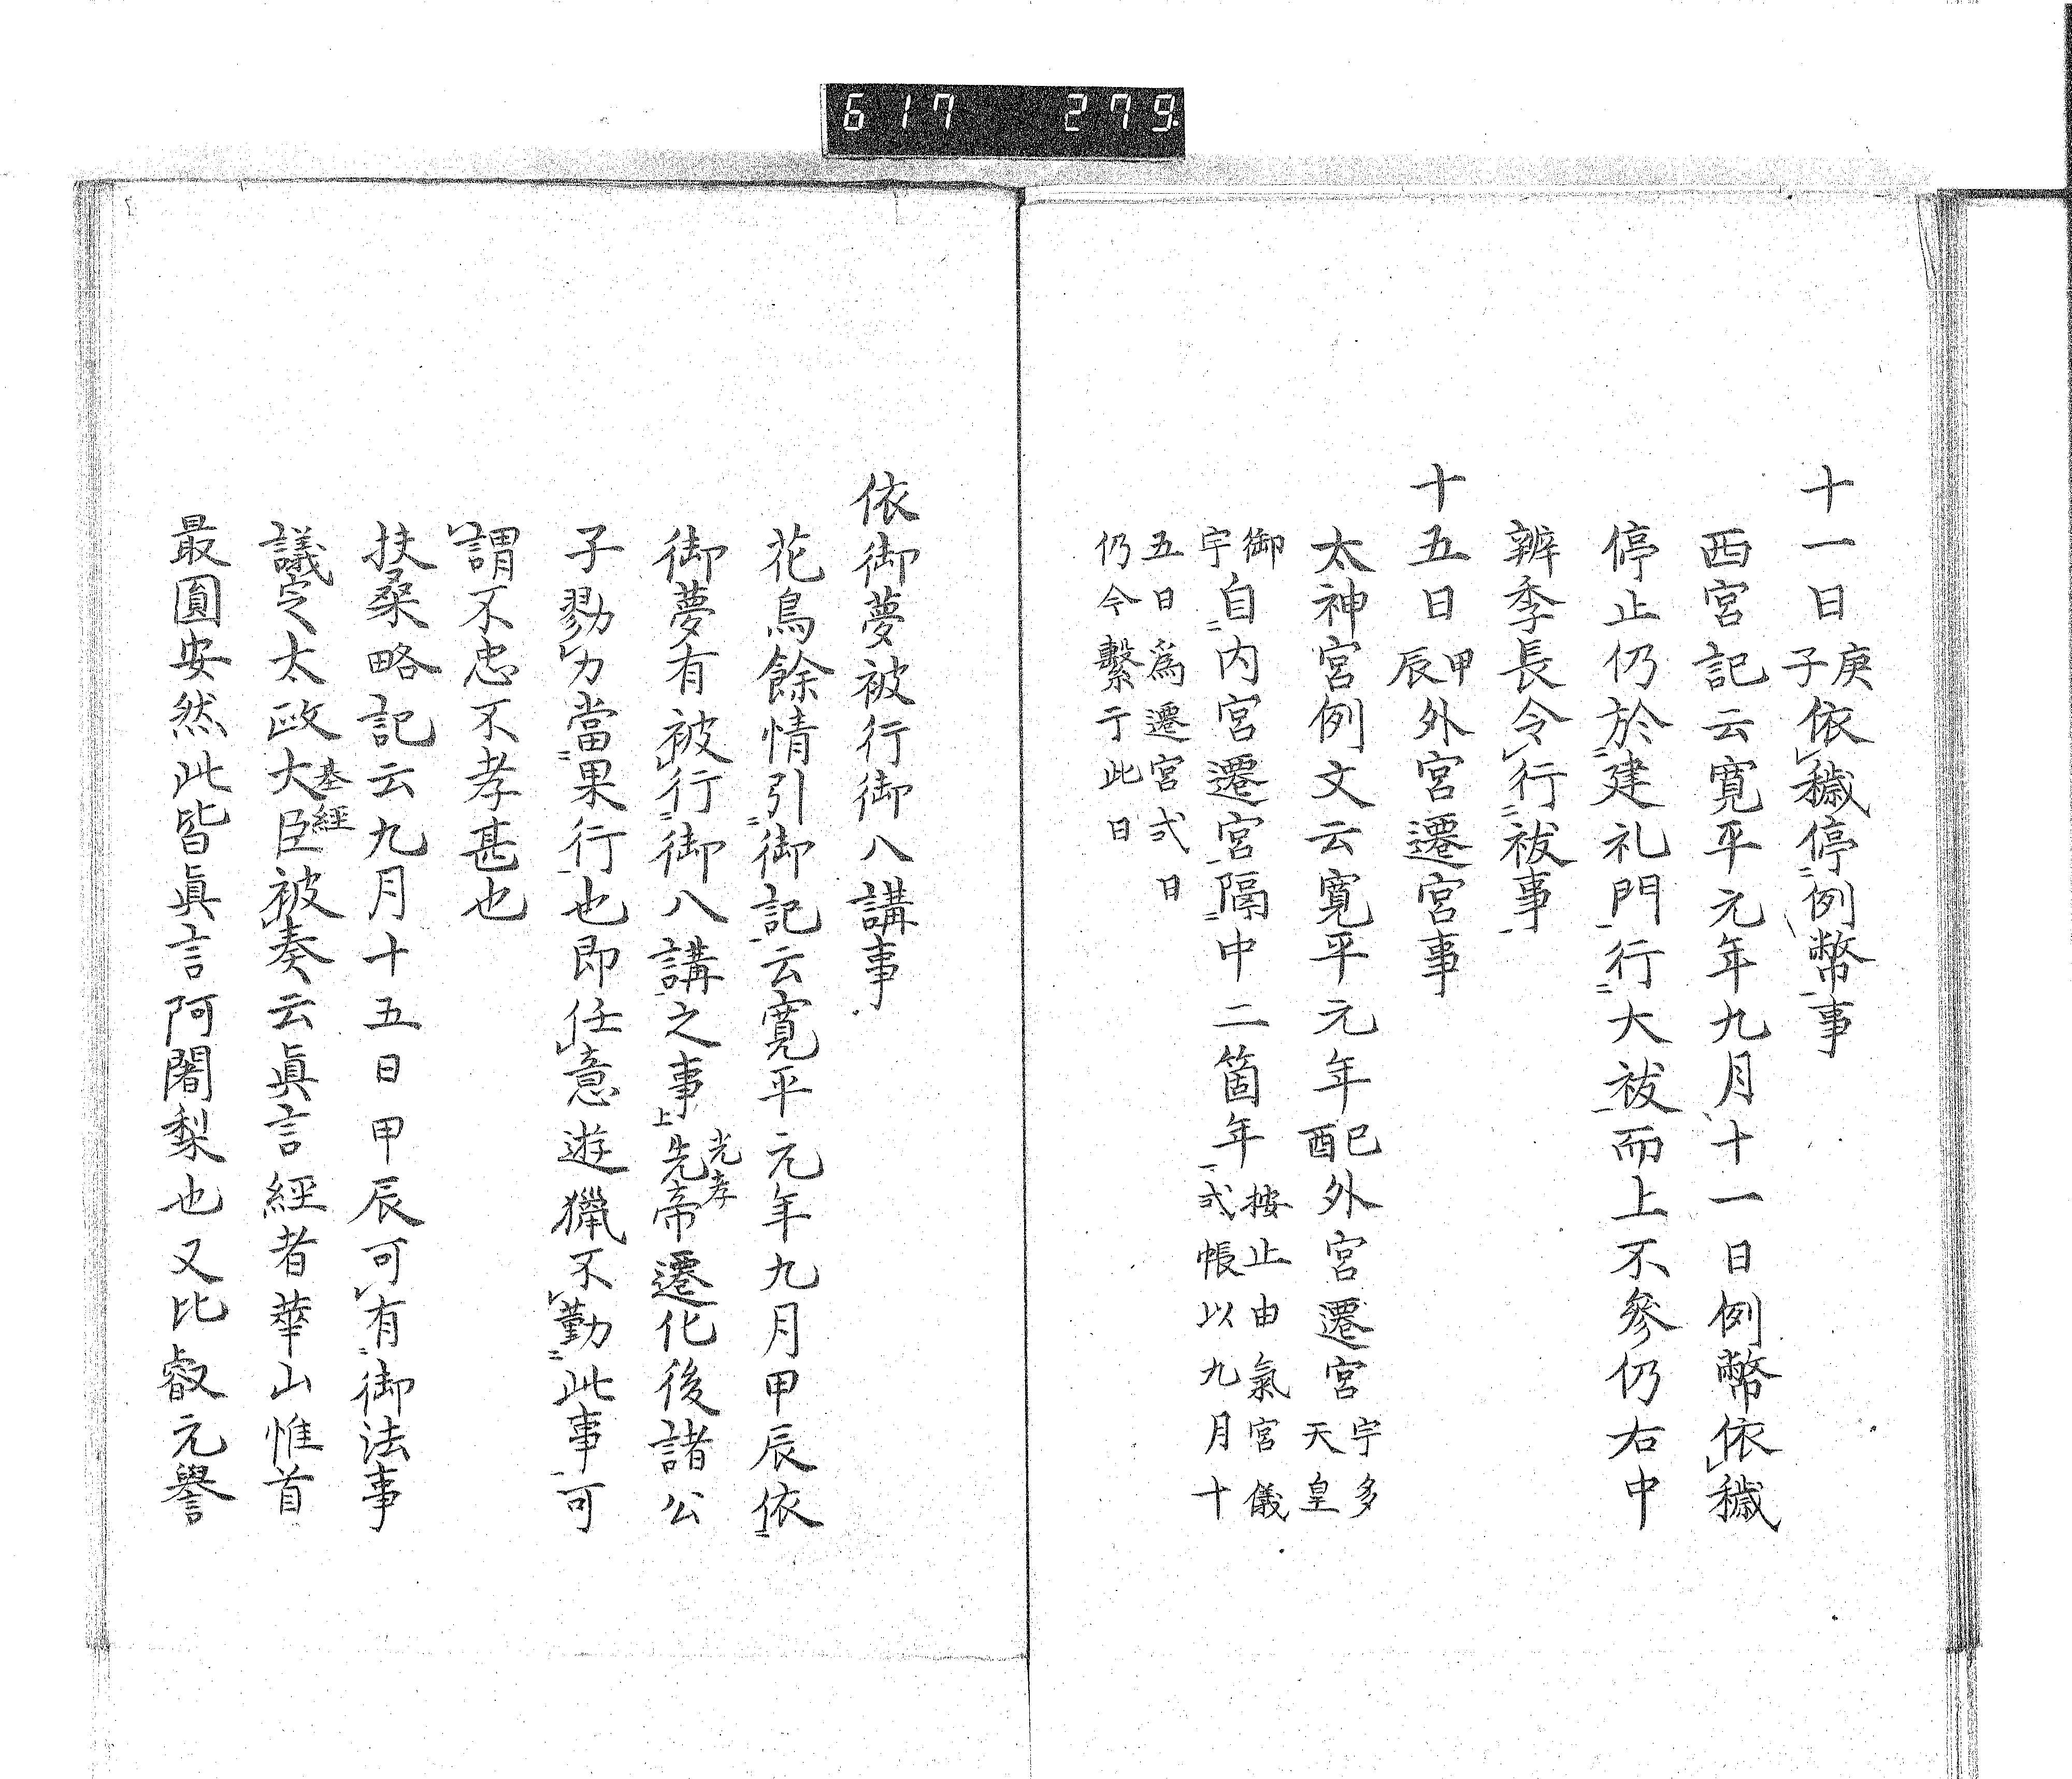 617 279
十一日庚子依穢停例幣事
西宮記云寛平元年九月十一日例幣依穢
停止仍於建礼門行大祓而上不參仍右中
辨季長令行祓事
十五日甲辰外宮遷宮事
太神宮例文云寛平元年己酉外宮遷宮宇多天皇
御宇自内宮遷宮隔中二箇年按止由氣宮儀式帳以九月十
五日為遷宮式日仍今繫于此日
依御夢被行御八講事
花鳥餘情引御記云寛平元年九月甲辰依
御夢有被行御八講之事上先帝光孝遷化後諸公
子勠力當果行也即任意遊獵不勤此事可
謂不忠不孝甚也
扶桑略記云九月十五日甲辰可有御法事
議定太政大臣基經被奏云眞言經者華山惟首
最圓安然此皆眞言阿闍梨也又比叡元譽